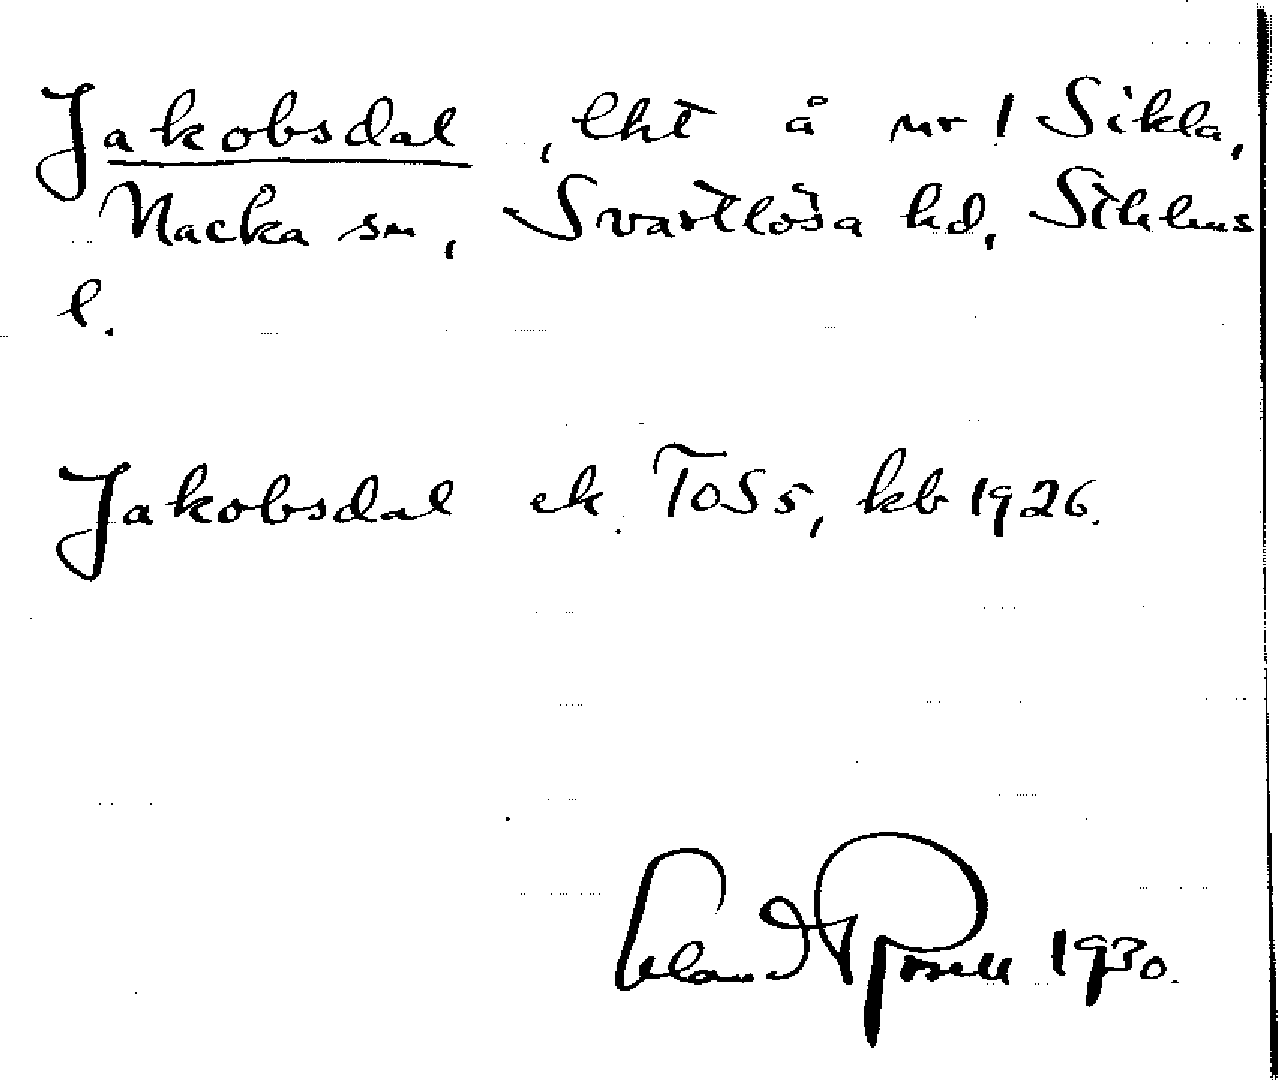 Jakobsdal, lht å nr 1 Sikla,
Nacka sn, Svartlösa hd, Sthlms
l.
Jakobsdal ek. ToS 5, kb 1926.
Erland Rosell 1930.